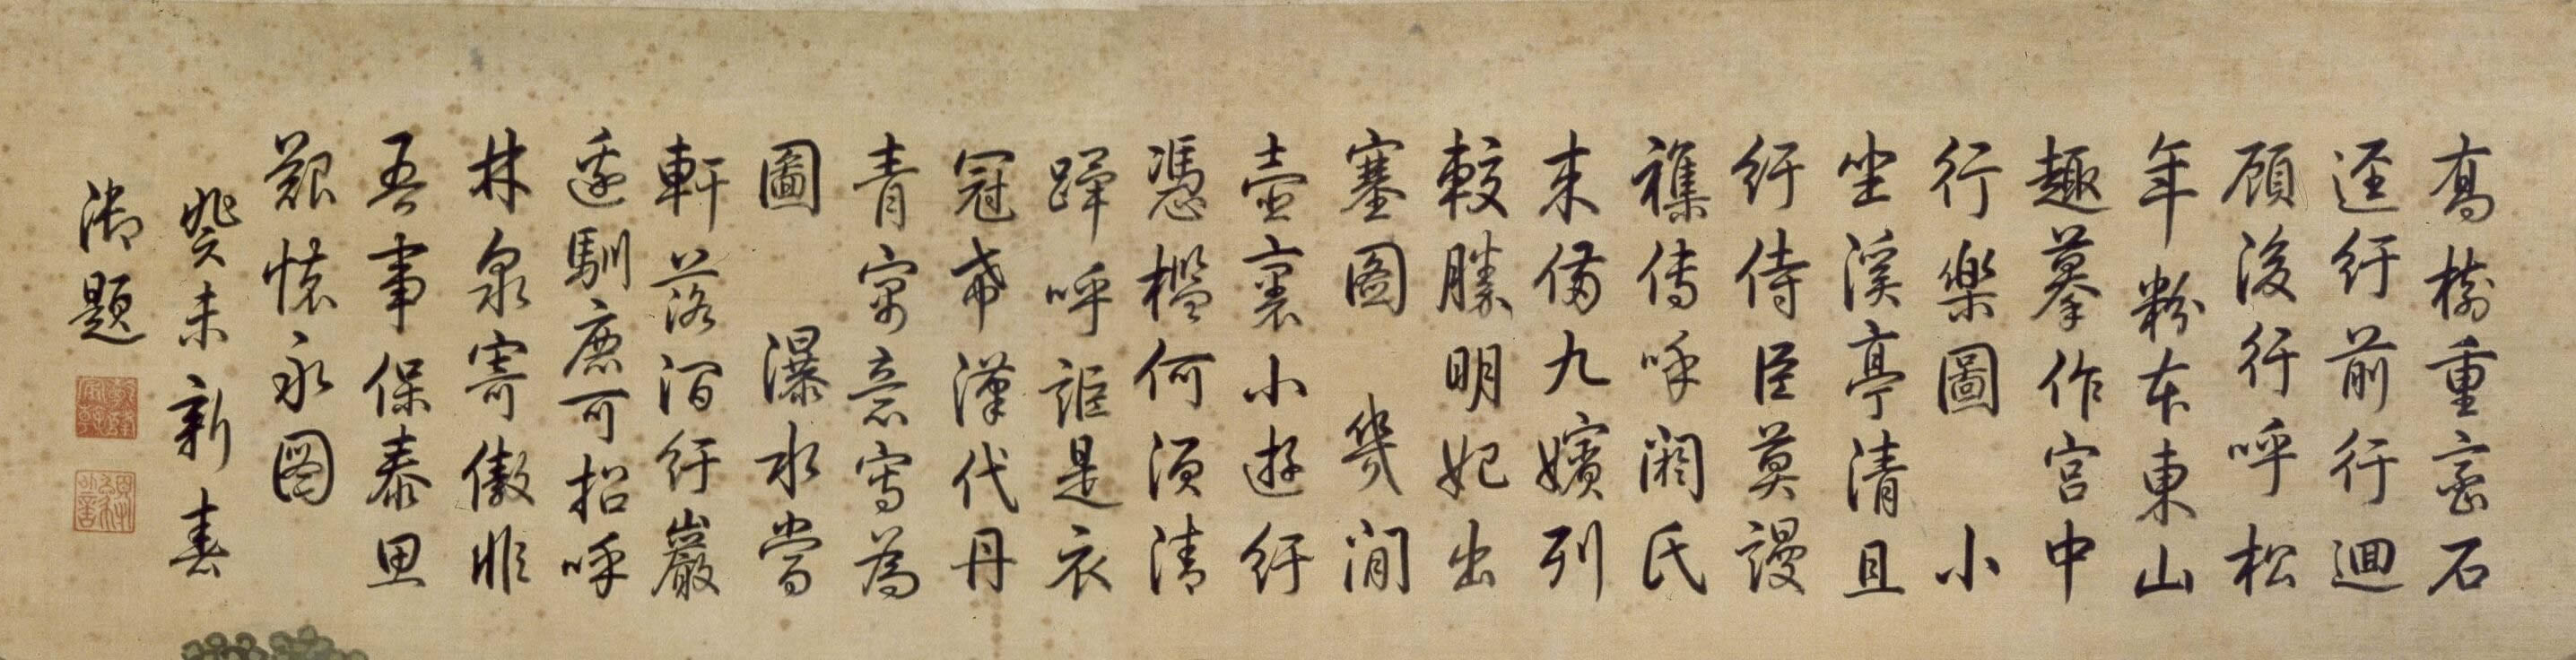 高樹重巒石
逕紆前行迴
顧後行呼松
年粉本東山
趣摹作宮中
行樂圖 小
坐溪亭清且
紆侍臣莫謾
襍傳呼閼氏
來備九嬪列
較勝明妃出
塞圖 幾閒
壺裏小遊紆
憑檻何須清
蹕呼詎是衣
冠希漢代丹
青寓意寫為
圖 瀑水當
軒落澗紆巖
邊馴鹿可招呼
林泉寄傲非
吾事保泰思
艱懷永圖
癸未新春
御題